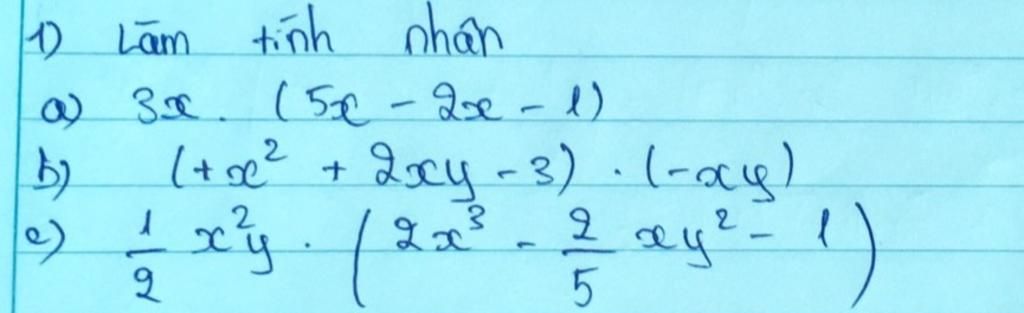 1) Làm tính nhân
a) 3x. (5x - 2x - 1)
b) (+x² + 2xy - 3) . (-xy)
c) 1/2 x²y . (2x³ - 2/5 xy² - 1)